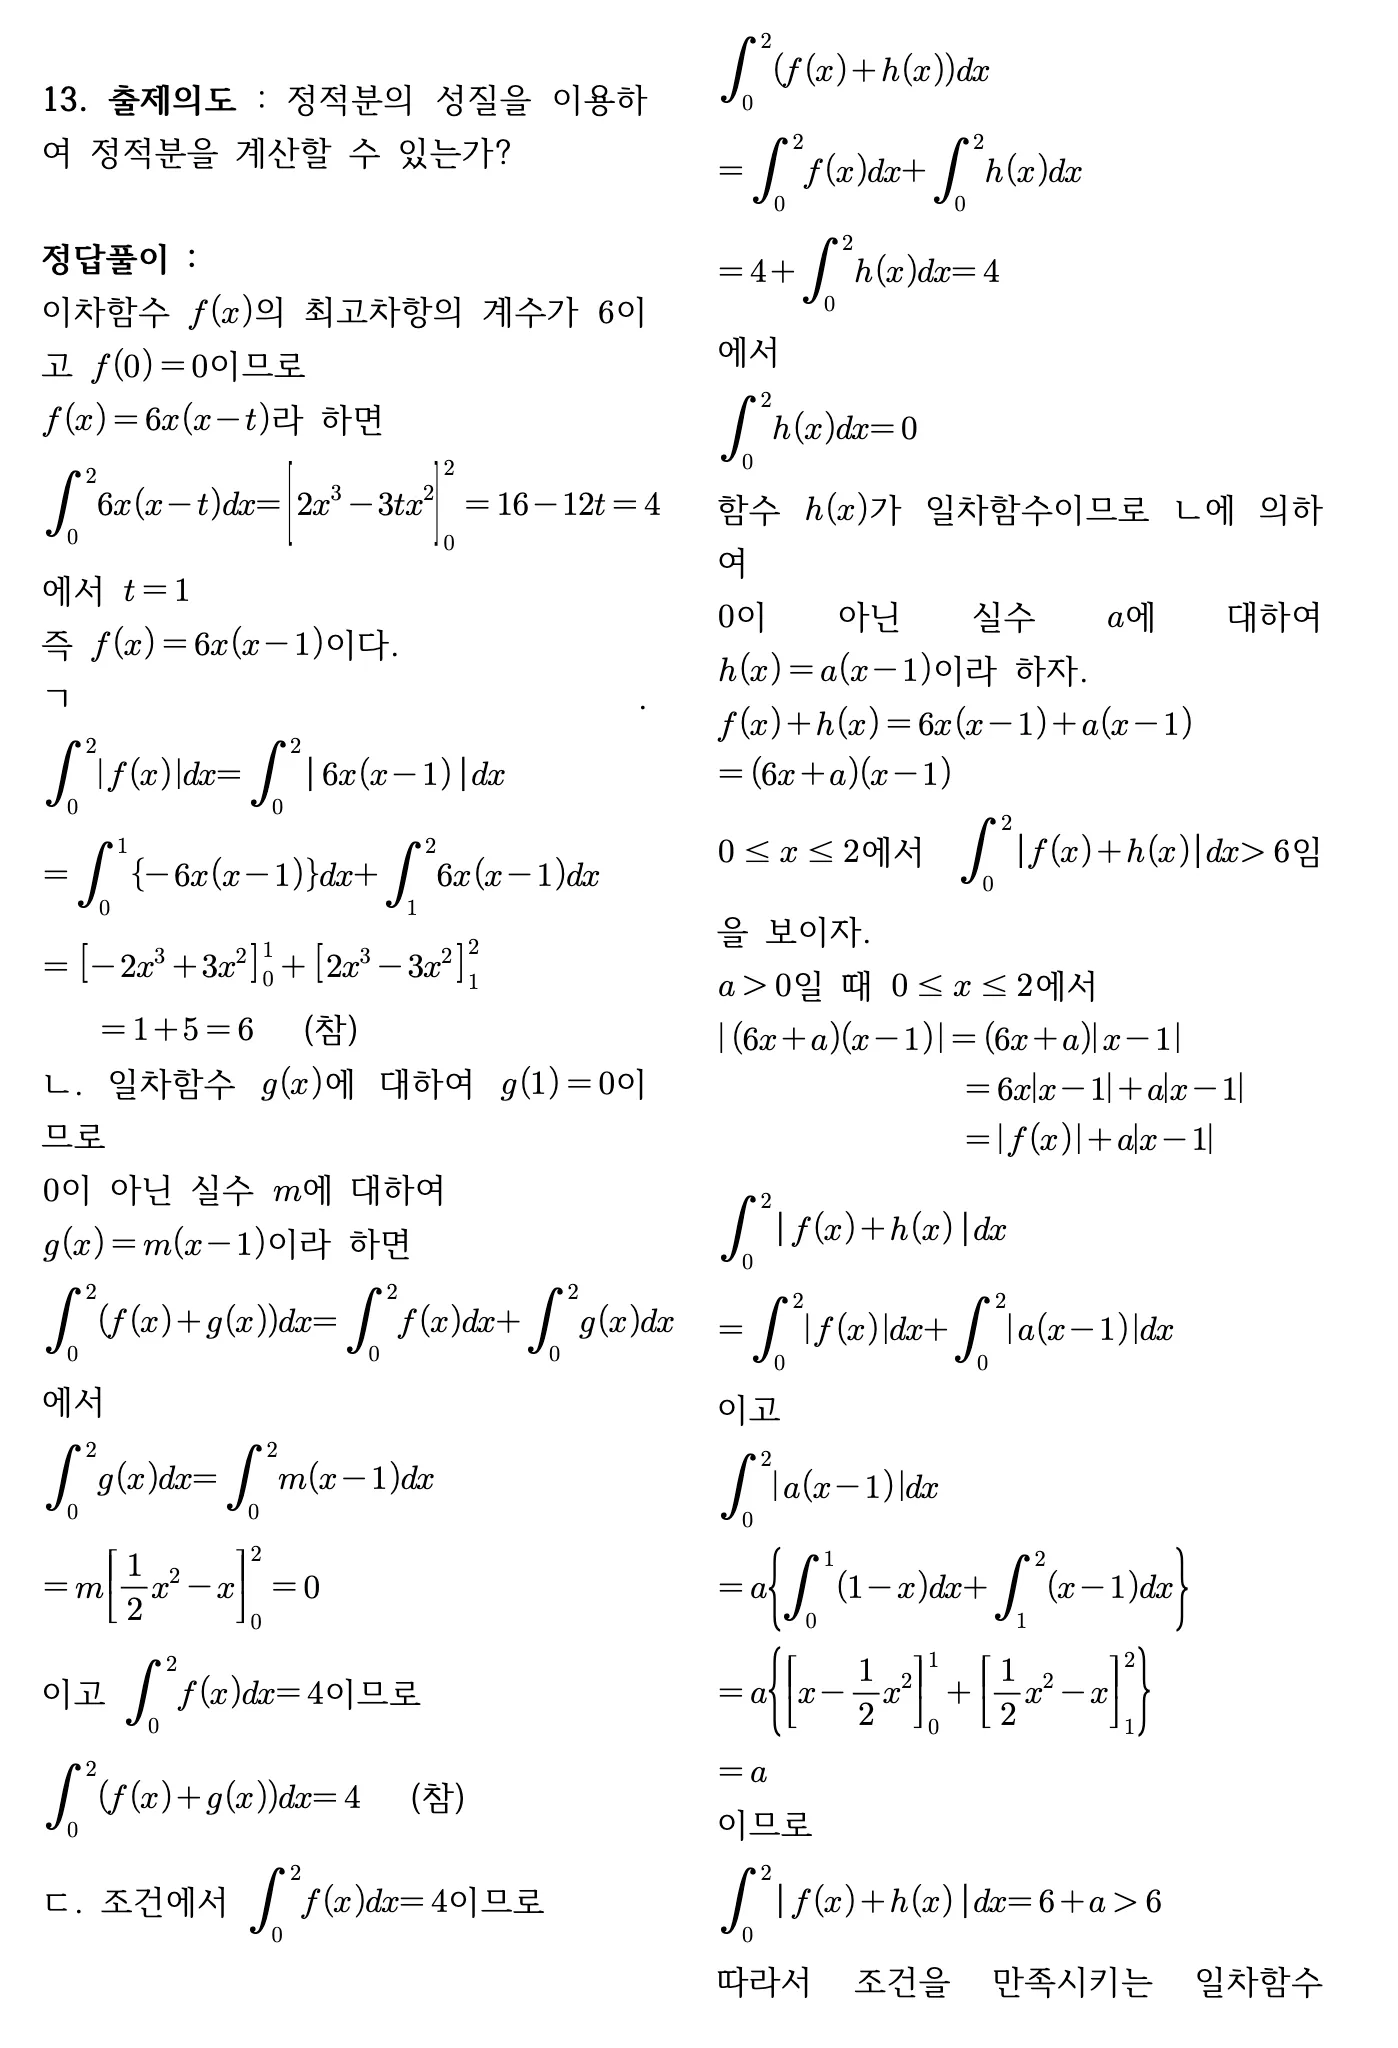 13. 출제의도 : 정적분의 성질을 이용하
여 정적분을 계산할 수 있는가?
정답풀이 :
이차함수 f(x)의 최고차항의 계수가 6이
고 f(0)=0이므로
f(x)=6x(x-t)라 하면
∫_0^2 6x(x-t)dx=[2x^3-3tx^2]_0^2=16-12t=4
에서 t=1
즉 f(x)=6x(x-1)이다.
ㄱ .
∫_0^2 |f(x)|dx=∫_0^2 |6x(x-1)|dx
=∫_0^1 {-6x(x-1)}dx+∫_1^2 6x(x-1)dx
=[-2x^3+3x^2]_0^1+[2x^3-3x^2]_1^2
=1+5=6 (참)
ㄴ. 일차함수 g(x)에 대하여 g(1)=0이
므로
0이 아닌 실수 m에 대하여
g(x)=m(x-1)이라 하면
∫_0^2 (f(x)+g(x))dx=∫_0^2 f(x)dx+∫_0^2 g(x)dx
에서
∫_0^2 g(x)dx=∫_0^2 m(x-1)dx
=m[1/2 x^2-x]_0^2=0
이고 ∫_0^2 f(x)dx=4이므로
∫_0^2 (f(x)+g(x))dx=4 (참)
ㄷ. 조건에서 ∫_0^2 f(x)dx=4이므로
∫_0^2 (f(x)+h(x))dx
=∫_0^2 f(x)dx+∫_0^2 h(x)dx
=4+∫_0^2 h(x)dx=4
에서
∫_0^2 h(x)dx=0
함수 h(x)가 일차함수이므로 ㄴ에 의하
여
0이 아닌 실수 a에 대하여
h(x)=a(x-1)이라 하자.
f(x)+h(x)=6x(x-1)+a(x-1)
=(6x+a)(x-1)
0≤x≤2에서 ∫_0^2 |f(x)+h(x)|dx>6임
을 보이자.
a>0일 때 0≤x≤2에서
|(6x+a)(x-1)|=(6x+a)|x-1|
=6x|x-1|+a|x-1|
=|f(x)|+a|x-1|
∫_0^2 |f(x)+h(x)|dx
=∫_0^2 |f(x)|dx+∫_0^2 |a(x-1)|dx
이고
∫_0^2 |a(x-1)|dx
=a{∫_0^1 (1-x)dx+∫_1^2 (x-1)dx}
=a{[x-1/2 x^2]_0^1+[1/2 x^2-x]_1^2}
=a
이므로
∫_0^2 |f(x)+h(x)|dx=6+a>6
따라서 조건을 만족시키는 일차함수